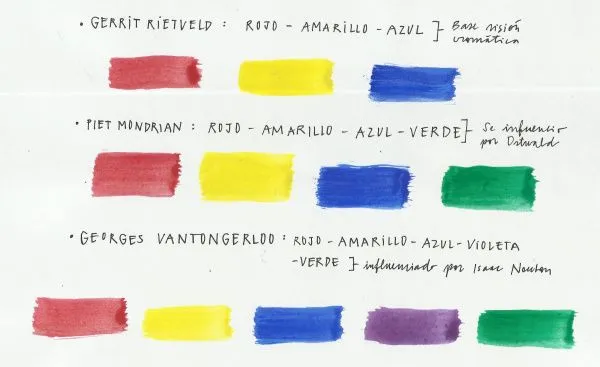 • GERRIT RIETVELD : ROJO - AMARILLO - AZUL } Base visión
cromática
• PIET MONDRIAN : ROJO - AMARILLO - AZUL - VERDE } Se influencio
por Ostwald
• GEORGES VANTONGERLOO : ROJO - AMARILLO - AZUL - VIOLETA
- VERDE } influenciado por Isaac Newton